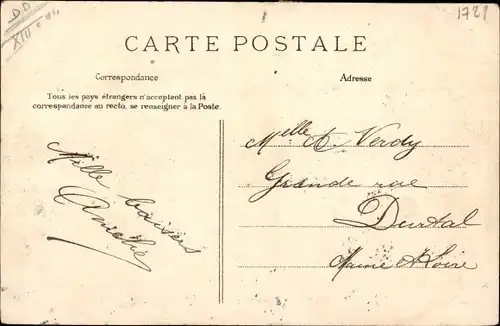 DD
XIII e arr
1721
CARTE POSTALE
Correspondance
Adresse
Tous les pays étrangers n'acceptent pas la
correspondance au recto, se renseigner à la Poste.
Mille baisers
Melle A. Verdy
Grande rue
Durtal
Maine & Loire